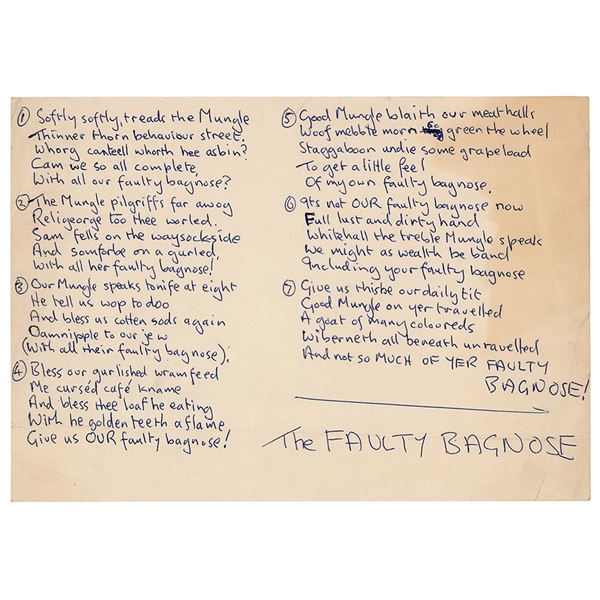 ① Softly softly, treads the Mungle
Thinner thorn behaviour street.
Whorg canteell whorth hee asbin?
Cam we so all complete,
With all our faulty bagnose?
② The Mungle pilgriffs far awoy
Religeorge too thee worled.
Sam fells on the waysock-side
And somforbe on a gurled,
With all her faulty bagnose!
③ Our Mungle speaks tonife at eight
He tell us wop to doo
And bless us cotten sods again
Oamnipple to our jew
(With all their faulty bagnose).
④ Bless our gurlished wramfeed
Me cursed café kname
And bless thee loaf he eating
With he golden teeth aflame
Give us OUR faulty bagnose!
⑤ Good Mungle blaith our meathalls
Woof mebble morn so green the wheel
Staggaboon undie some grapeload
To get a little feel
Of my own faulty bagnose.
⑥ Its not OUR faulty bagnose now
Full lust and dirty hand
Whitehall the treble Mungle speak
We might as wealth be band
Including your faulty bagnose
⑦ Give us thisbe our daily tit
Good Mungle on yer travelled
A goat of many coloureds
Wiberneth all beneath unravelled
And not so MUCH OF YER FAULTY
BAGNOSE!
The FAULTY BAGNOSE